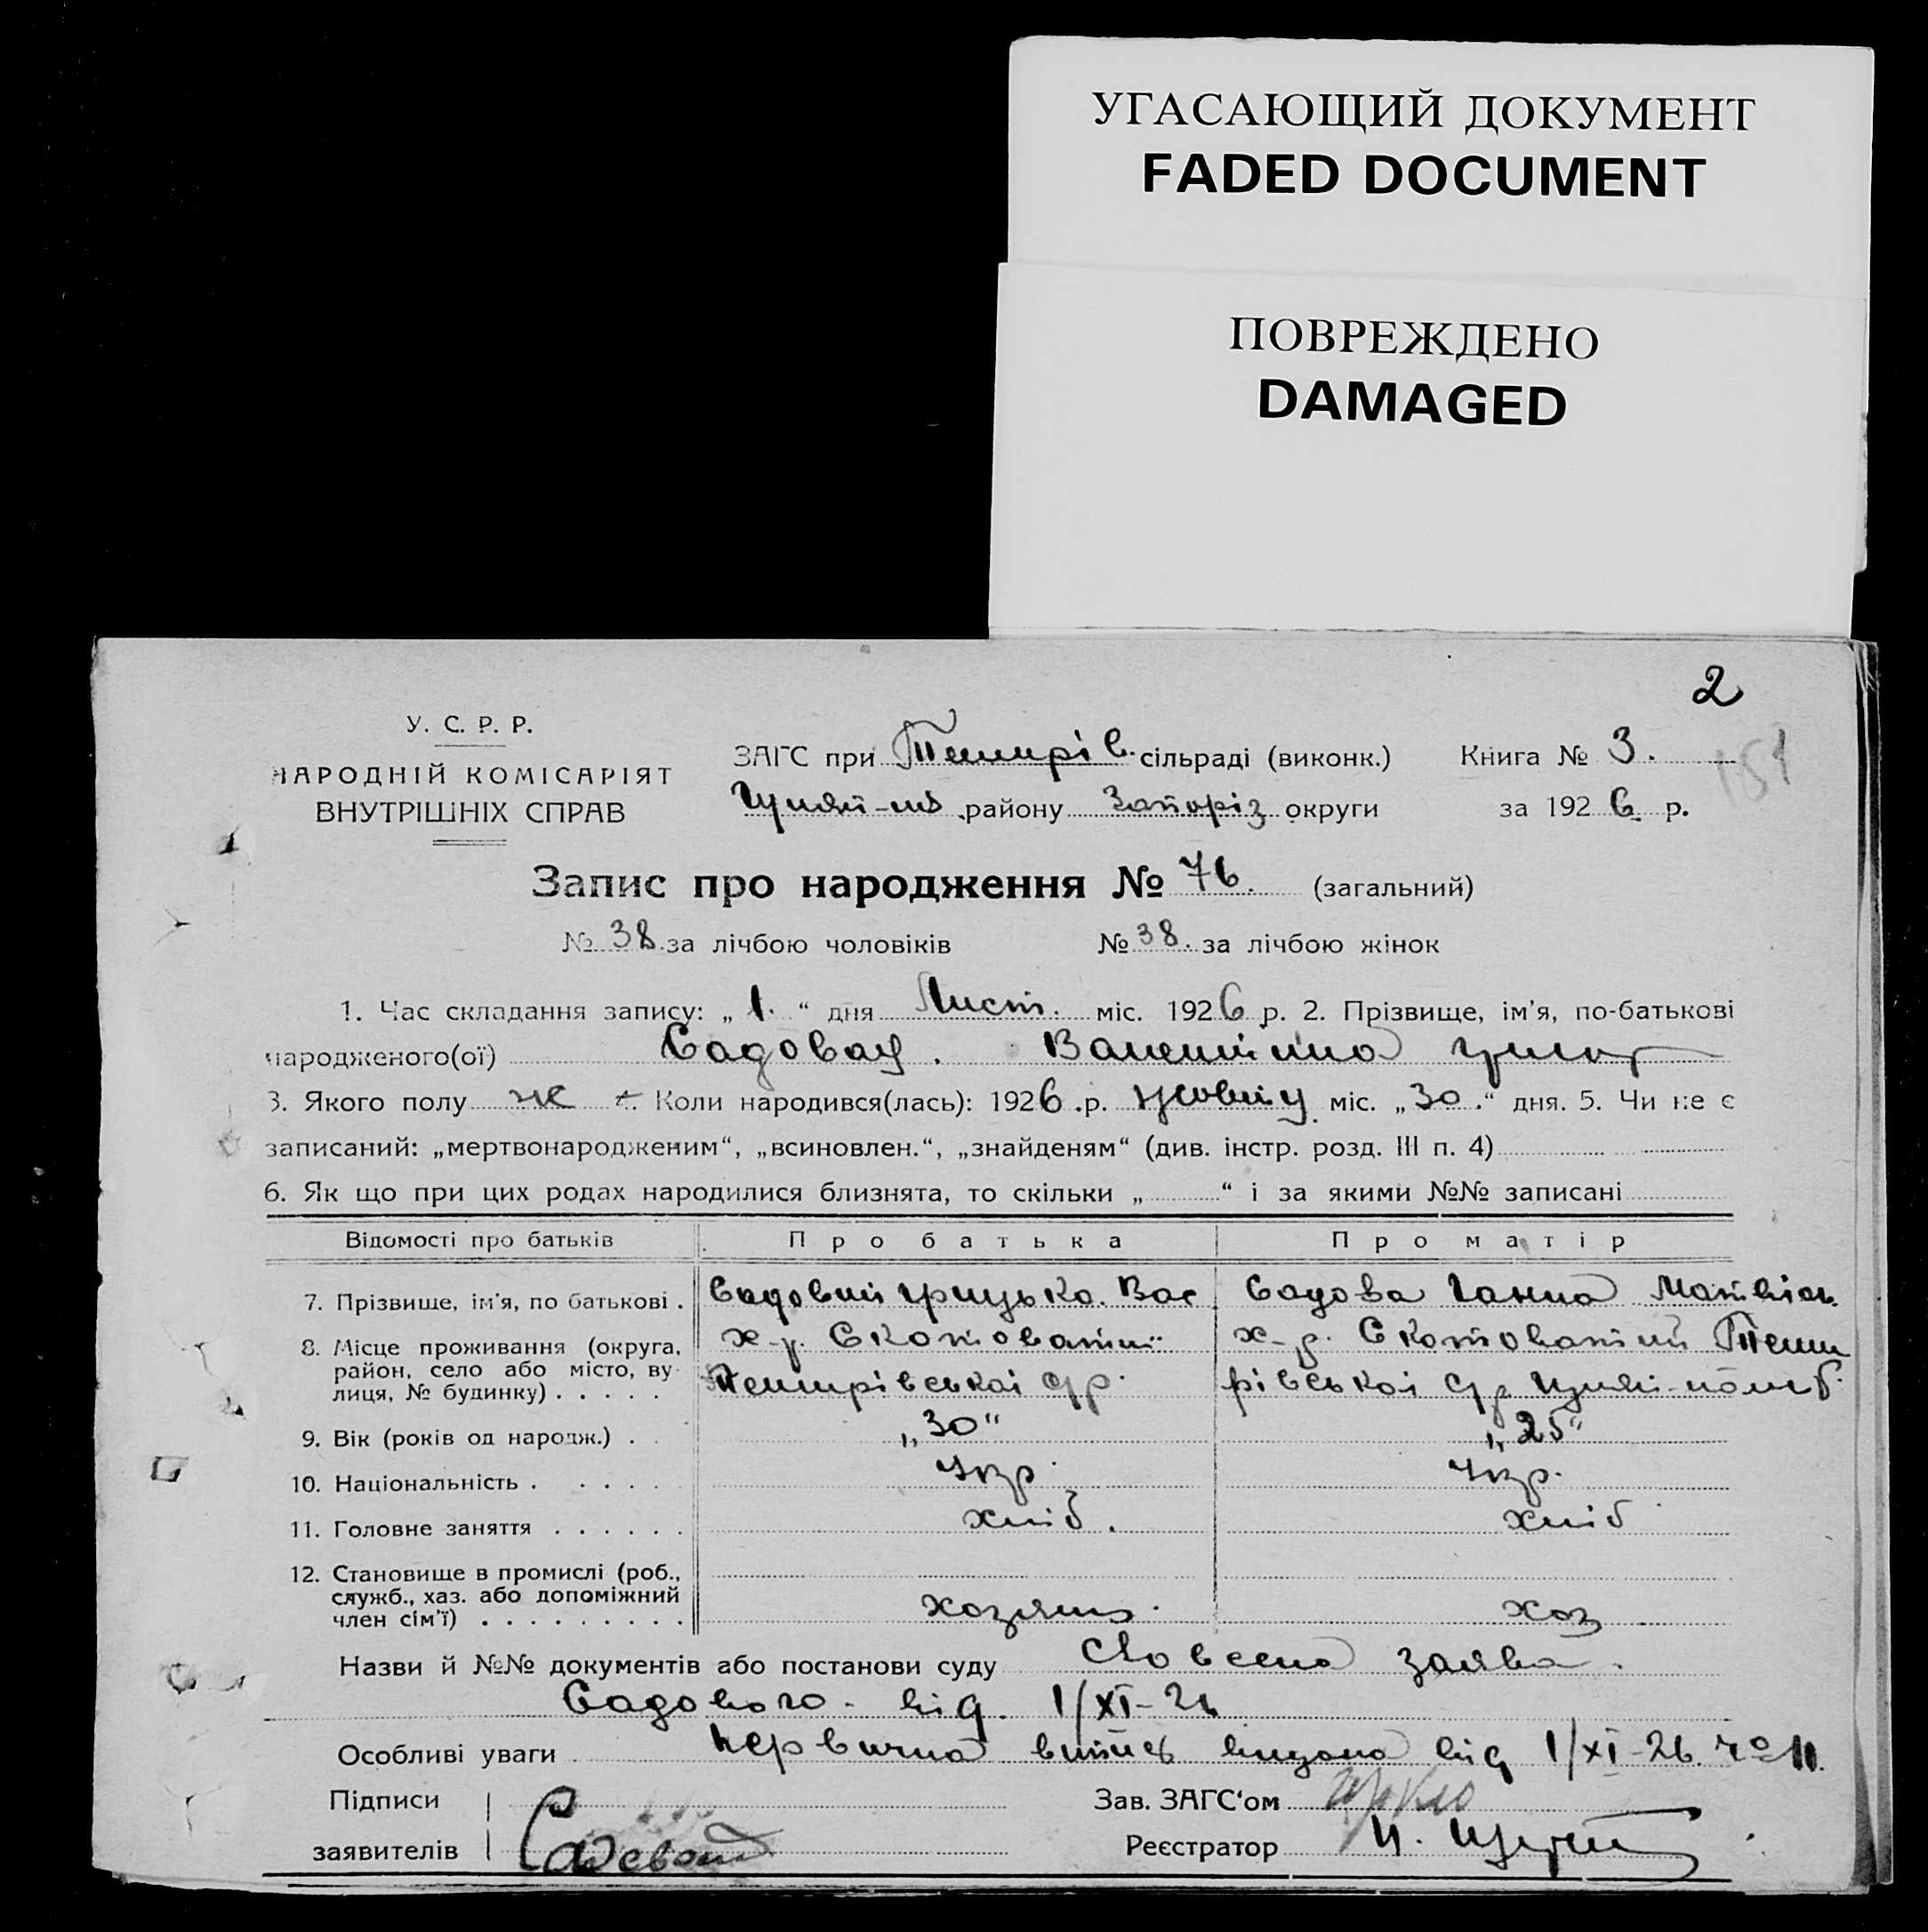 УГАСАЮЩИЙ ДОКУМЕНТ
FADED DOCUMENT
ПОВРЕЖДЕНО
DAMAGED
2
У. С. Р. Р.
НАРОДНІЙ КОМІСАРІЯТ
ВНУТРІШНІХ СПРАВ
ЗАГС при сільраді (виконк.) Книга № 3. 151
району Запоріз округи за 1926 р.
Запис про народження № 76. (загальний)
№ 38. за лічбою чоловіків № 38. за лічбою жінок
1. Час складання запису: „ 1. “ дня Лист. міс. 1926 р. 2. Прізвище, ім'я, по-батькові
народженого(ої) Садовая. Валентина
3. Якого полу ж 4. Коли народився(лась): 1926 .р. жовтня міс. „30.“ дня. 5. Чи не є
записаний: „мертвонародженим“, „всиновлен.“, „знайденям“ (див. інстр. розд. III п. 4)
6. Як що при цих родах народилися близнята, то скільки „ “ і за якими №№ записані
Відомості про батьків Про батька Про матір
7. Прізвище, ім'я, по батькові . Садовий Грицько. Вас Садова Ганна Матвієв.
8. Місце проживання (округа, район, село або місто, вулиця, № будинку) . . . . . х-р. Скотоватий
9. Вік (років од народж.) . . „30“ „25“
10. Національність . . . . . Укр. Укр.
11. Головне заняття . . . . . . хліб. хліб
12. Становище в промислі (роб., служб., хаз. або допоміжний член сім'ї) . . . . . . . . . хозяин. хоз
Назви й №№ документів або постанови суду Словесна заява.
Садового. від. 1/XI-26
Особливі уваги Первична видана від 1/XI-26. № 11.
Підписи Зав. ЗАГС'ом
заявителів Садовый Реєстратор